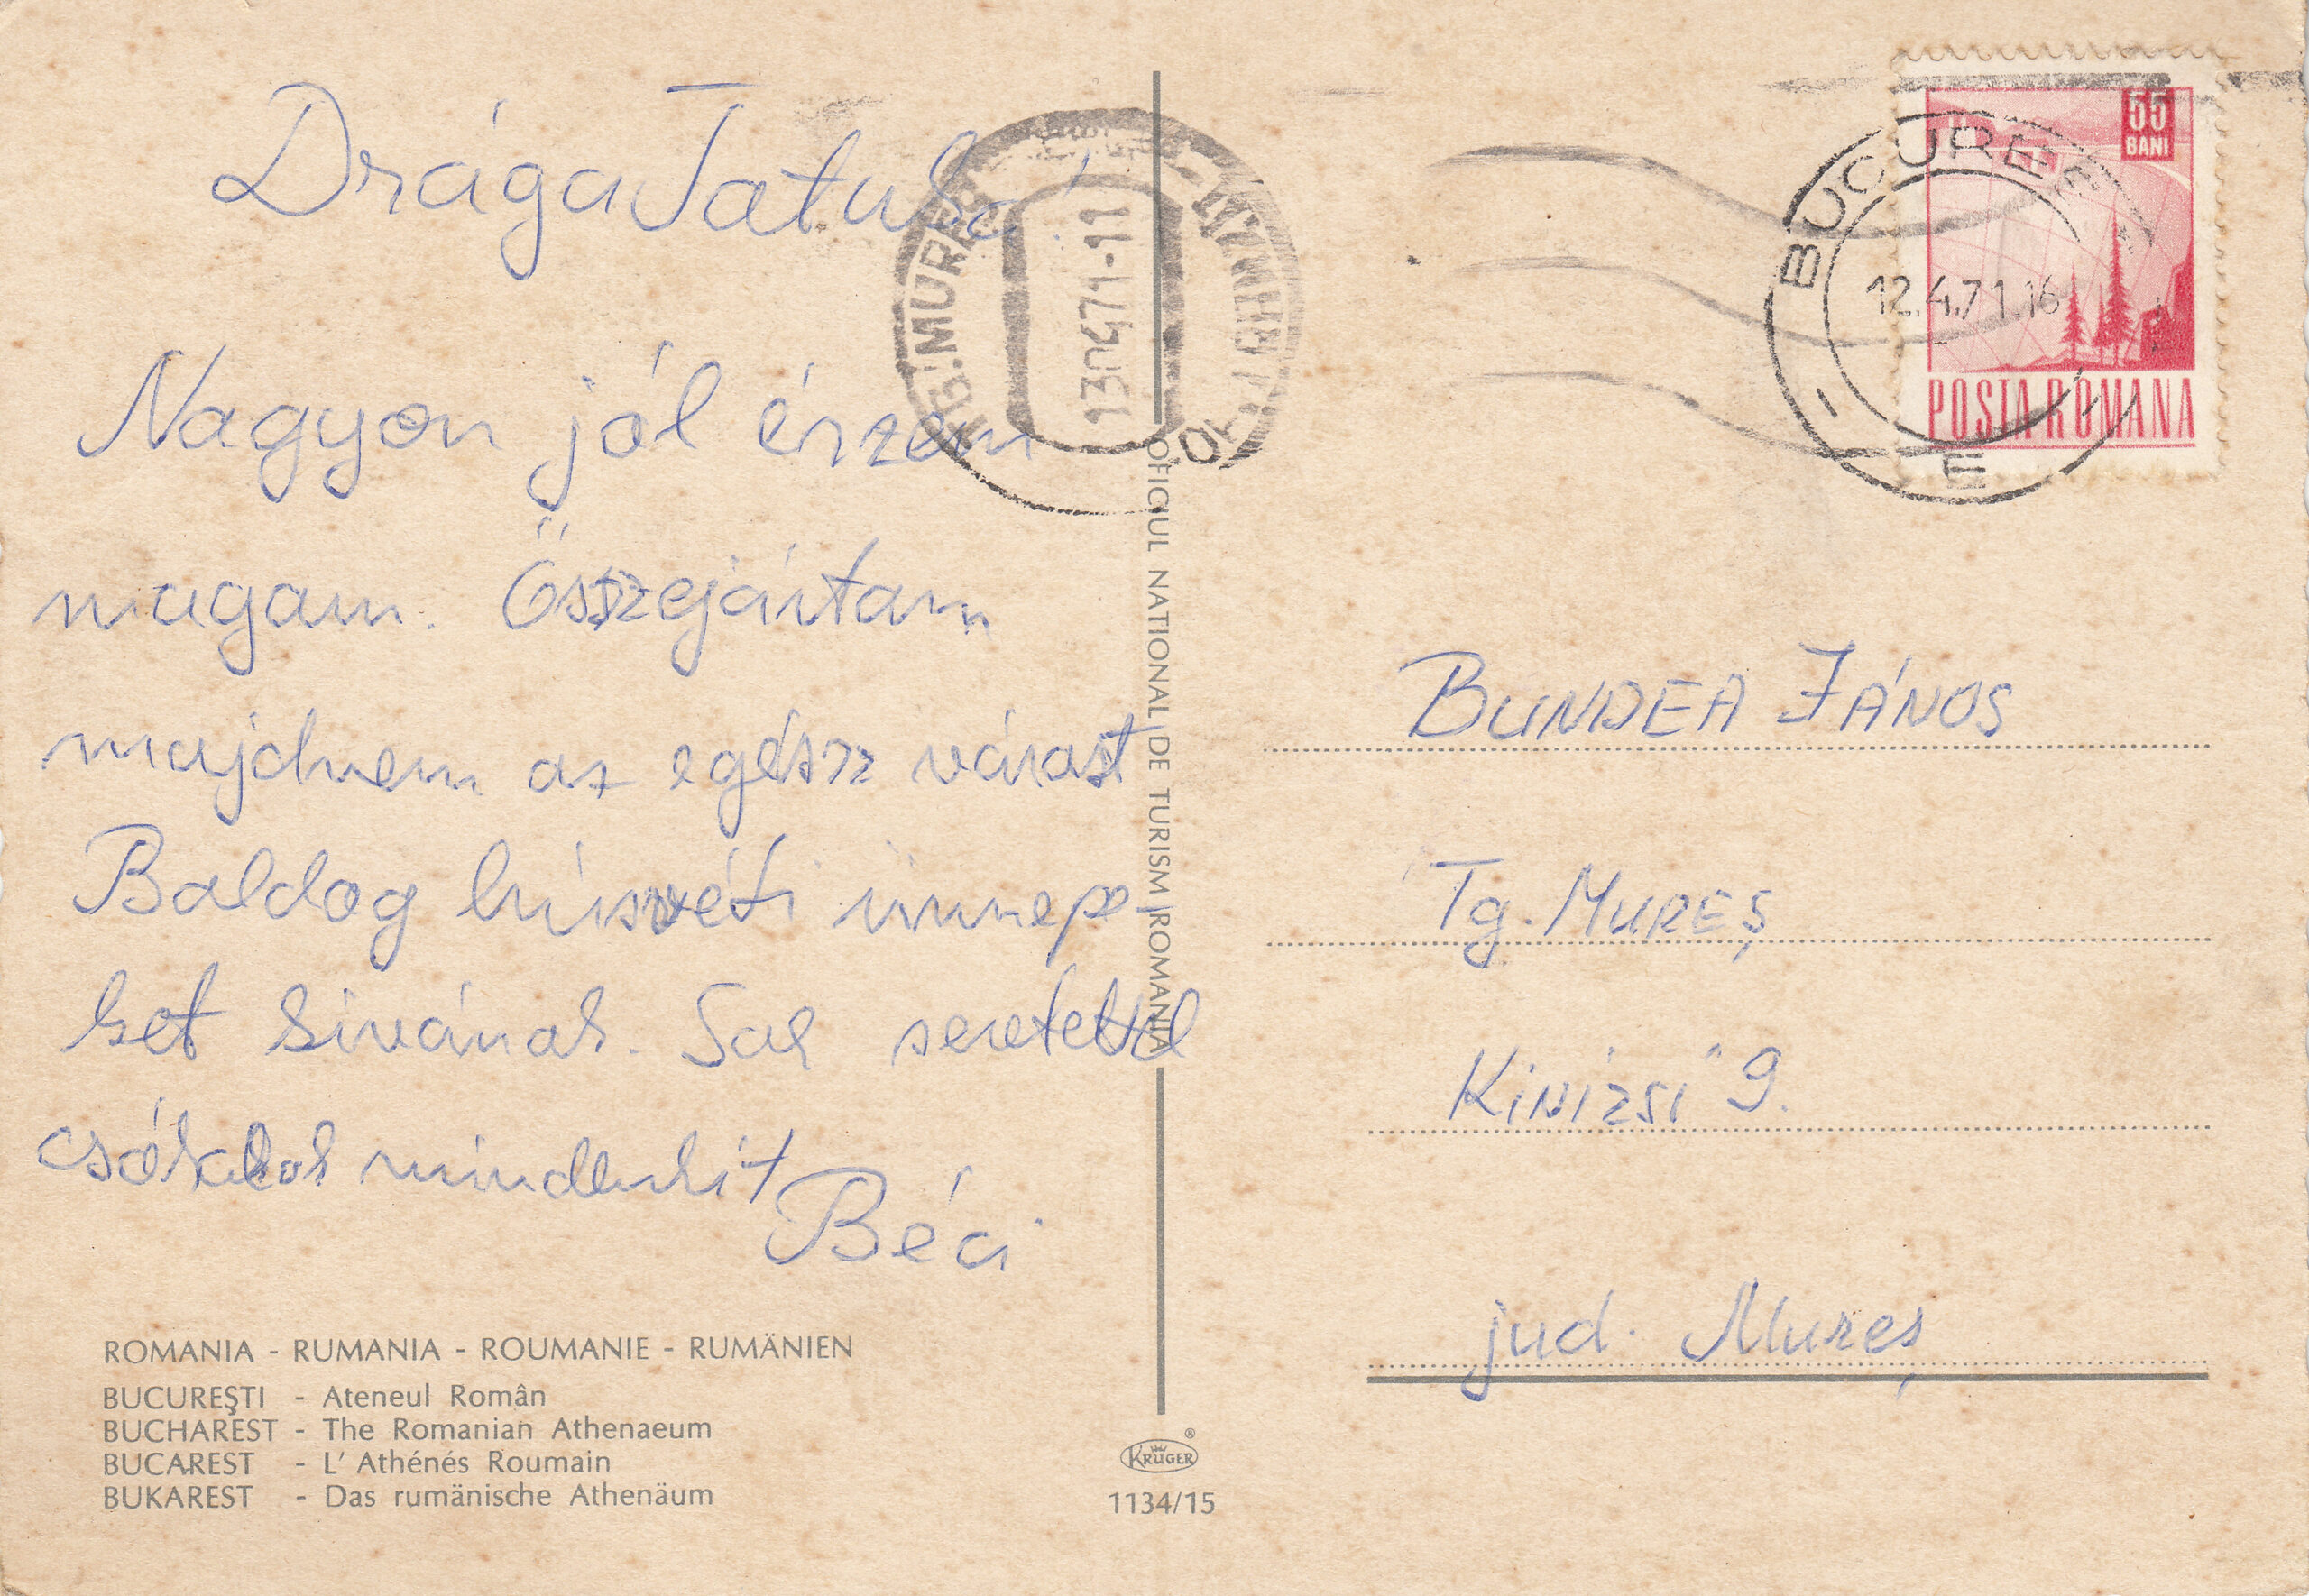 Drága Tatuka!
Nagyon jól érzem
magam. Összejártam
majdnem az egész várost
Baldog húsvéti ünnepe-
ket kivánok. Sok seretettel
csókolok mindenkit
Béci
ROMANIA - RUMANIA - ROUMANIE - RUMÄNIEN
BUCUREŞTI - Ateneul Român
BUCHAREST - The Romanian Athenaeum
BUCAREST - L' Athénés Roumain
BUKAREST - Das rumänische Athenäum
OFICIUL NATIONAL DE TURISM ROMANIA
KRÜGER ®
1134/15
TG. MUREŞ
13 04 71-11
55
BANI
POSTA ROMANA
BUCUREŞTI
12.4.71.16
BUNDEA JÁNOS
Tg. MUREŞ
KINIZSI 9.
jud. Mureş